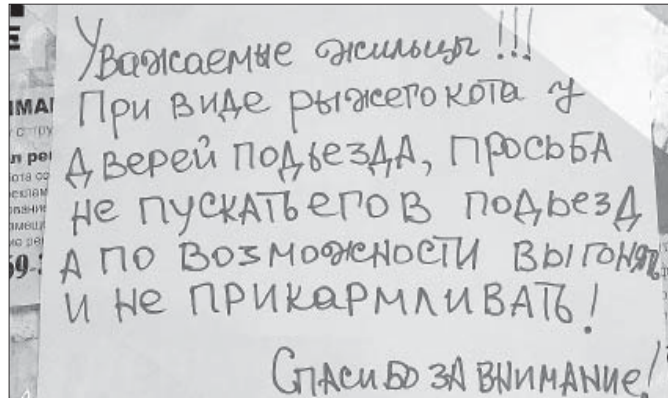 Уважаемые жильцы!!!
При виде рыжего кота у
дверей подьезда, просьба
не пускать его в подьезд
а по возможности выгонять
и не прикармливать!
Спасибо за внимание!